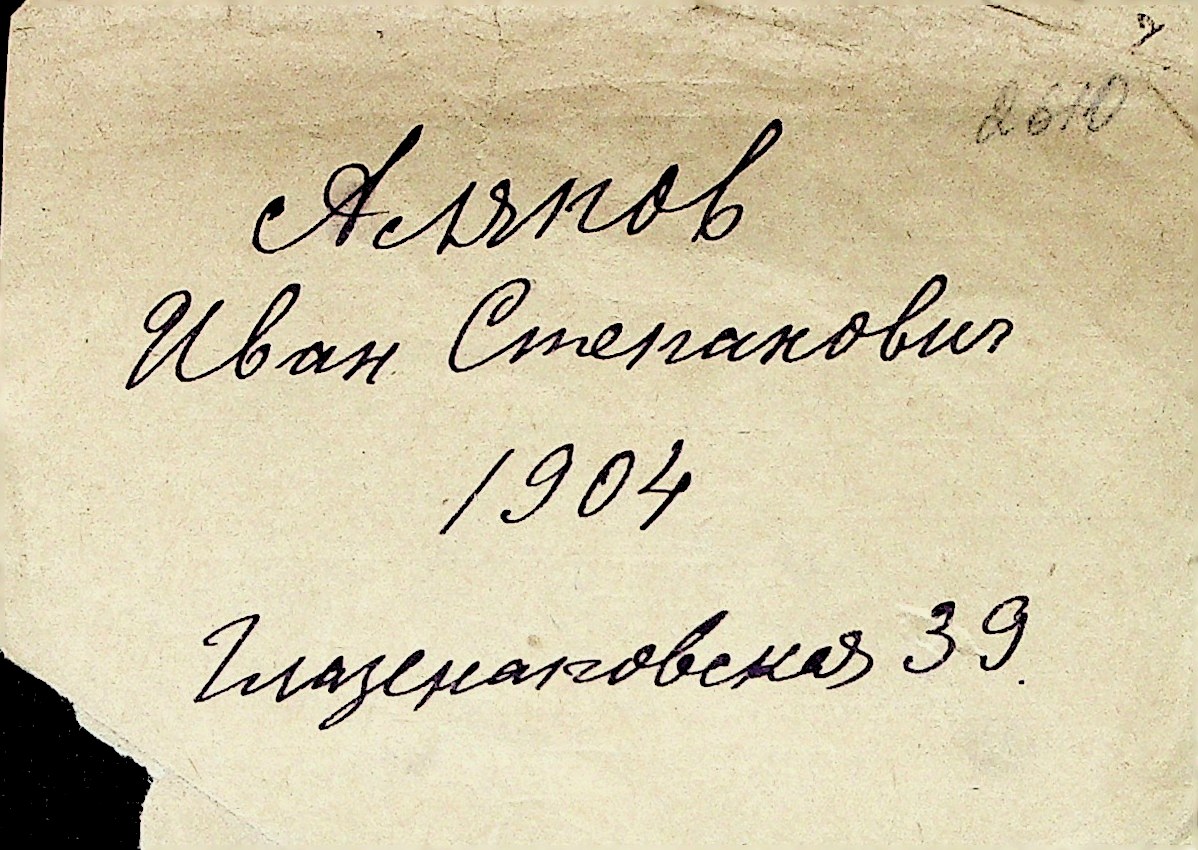 2670
Аляпов
Иван Степанович
1904
Глазенаповская 39.